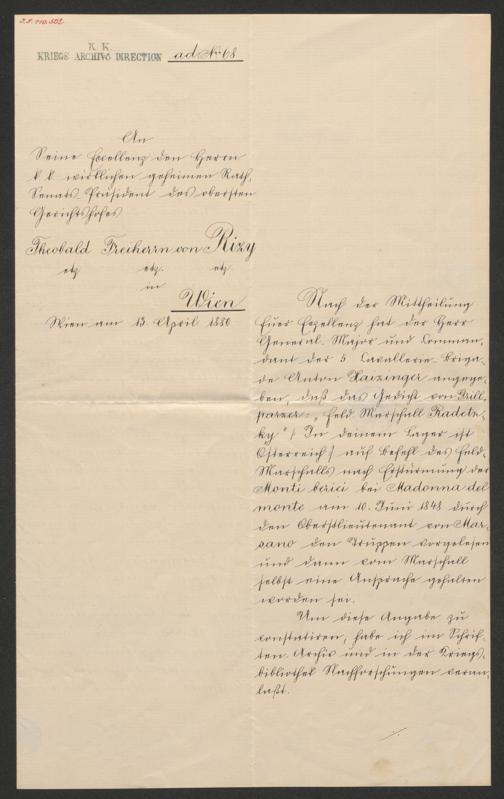 K. K.
KRIEGS ARCHIVS DIRECTION ad No 68
An
Seine Excellenz den Herrn
k k wirklichen geheimen Rath,
Senats-Präsident des obersten
Gerichtshofes
Theobald Freiherrn von Rizy
etz etz. etz
in
Wien
Wien am 13. April 1880
Nach der Mittheilung
Euer Excellenz hat der Herr
General-Major und Comman-
dant der 5. Cavallerie-Briga-
de Anton Haizinger angege-
ben, daß das Gedicht von Grill-
parzer: „Feld Marschall Radetz-
ky" / In deinem Lager ist
Österreich / auf Befehl des Feld-
Marschalls nach Erstürmung der
Monti berici bei Madonna del
monte am 10. Juni 1848 durch
den Oberstlieutenant von Mar-
sano den Truppen vorgelesen
und dann vom Marschall
selbst eine Ansprache gehalten
worden sei.
Um diese Angabe zu
constatiren, habe ich im Schrif-
ten-Archiv und in der Kriegs-
bibliothek Nachforschungen veran-
laßt.